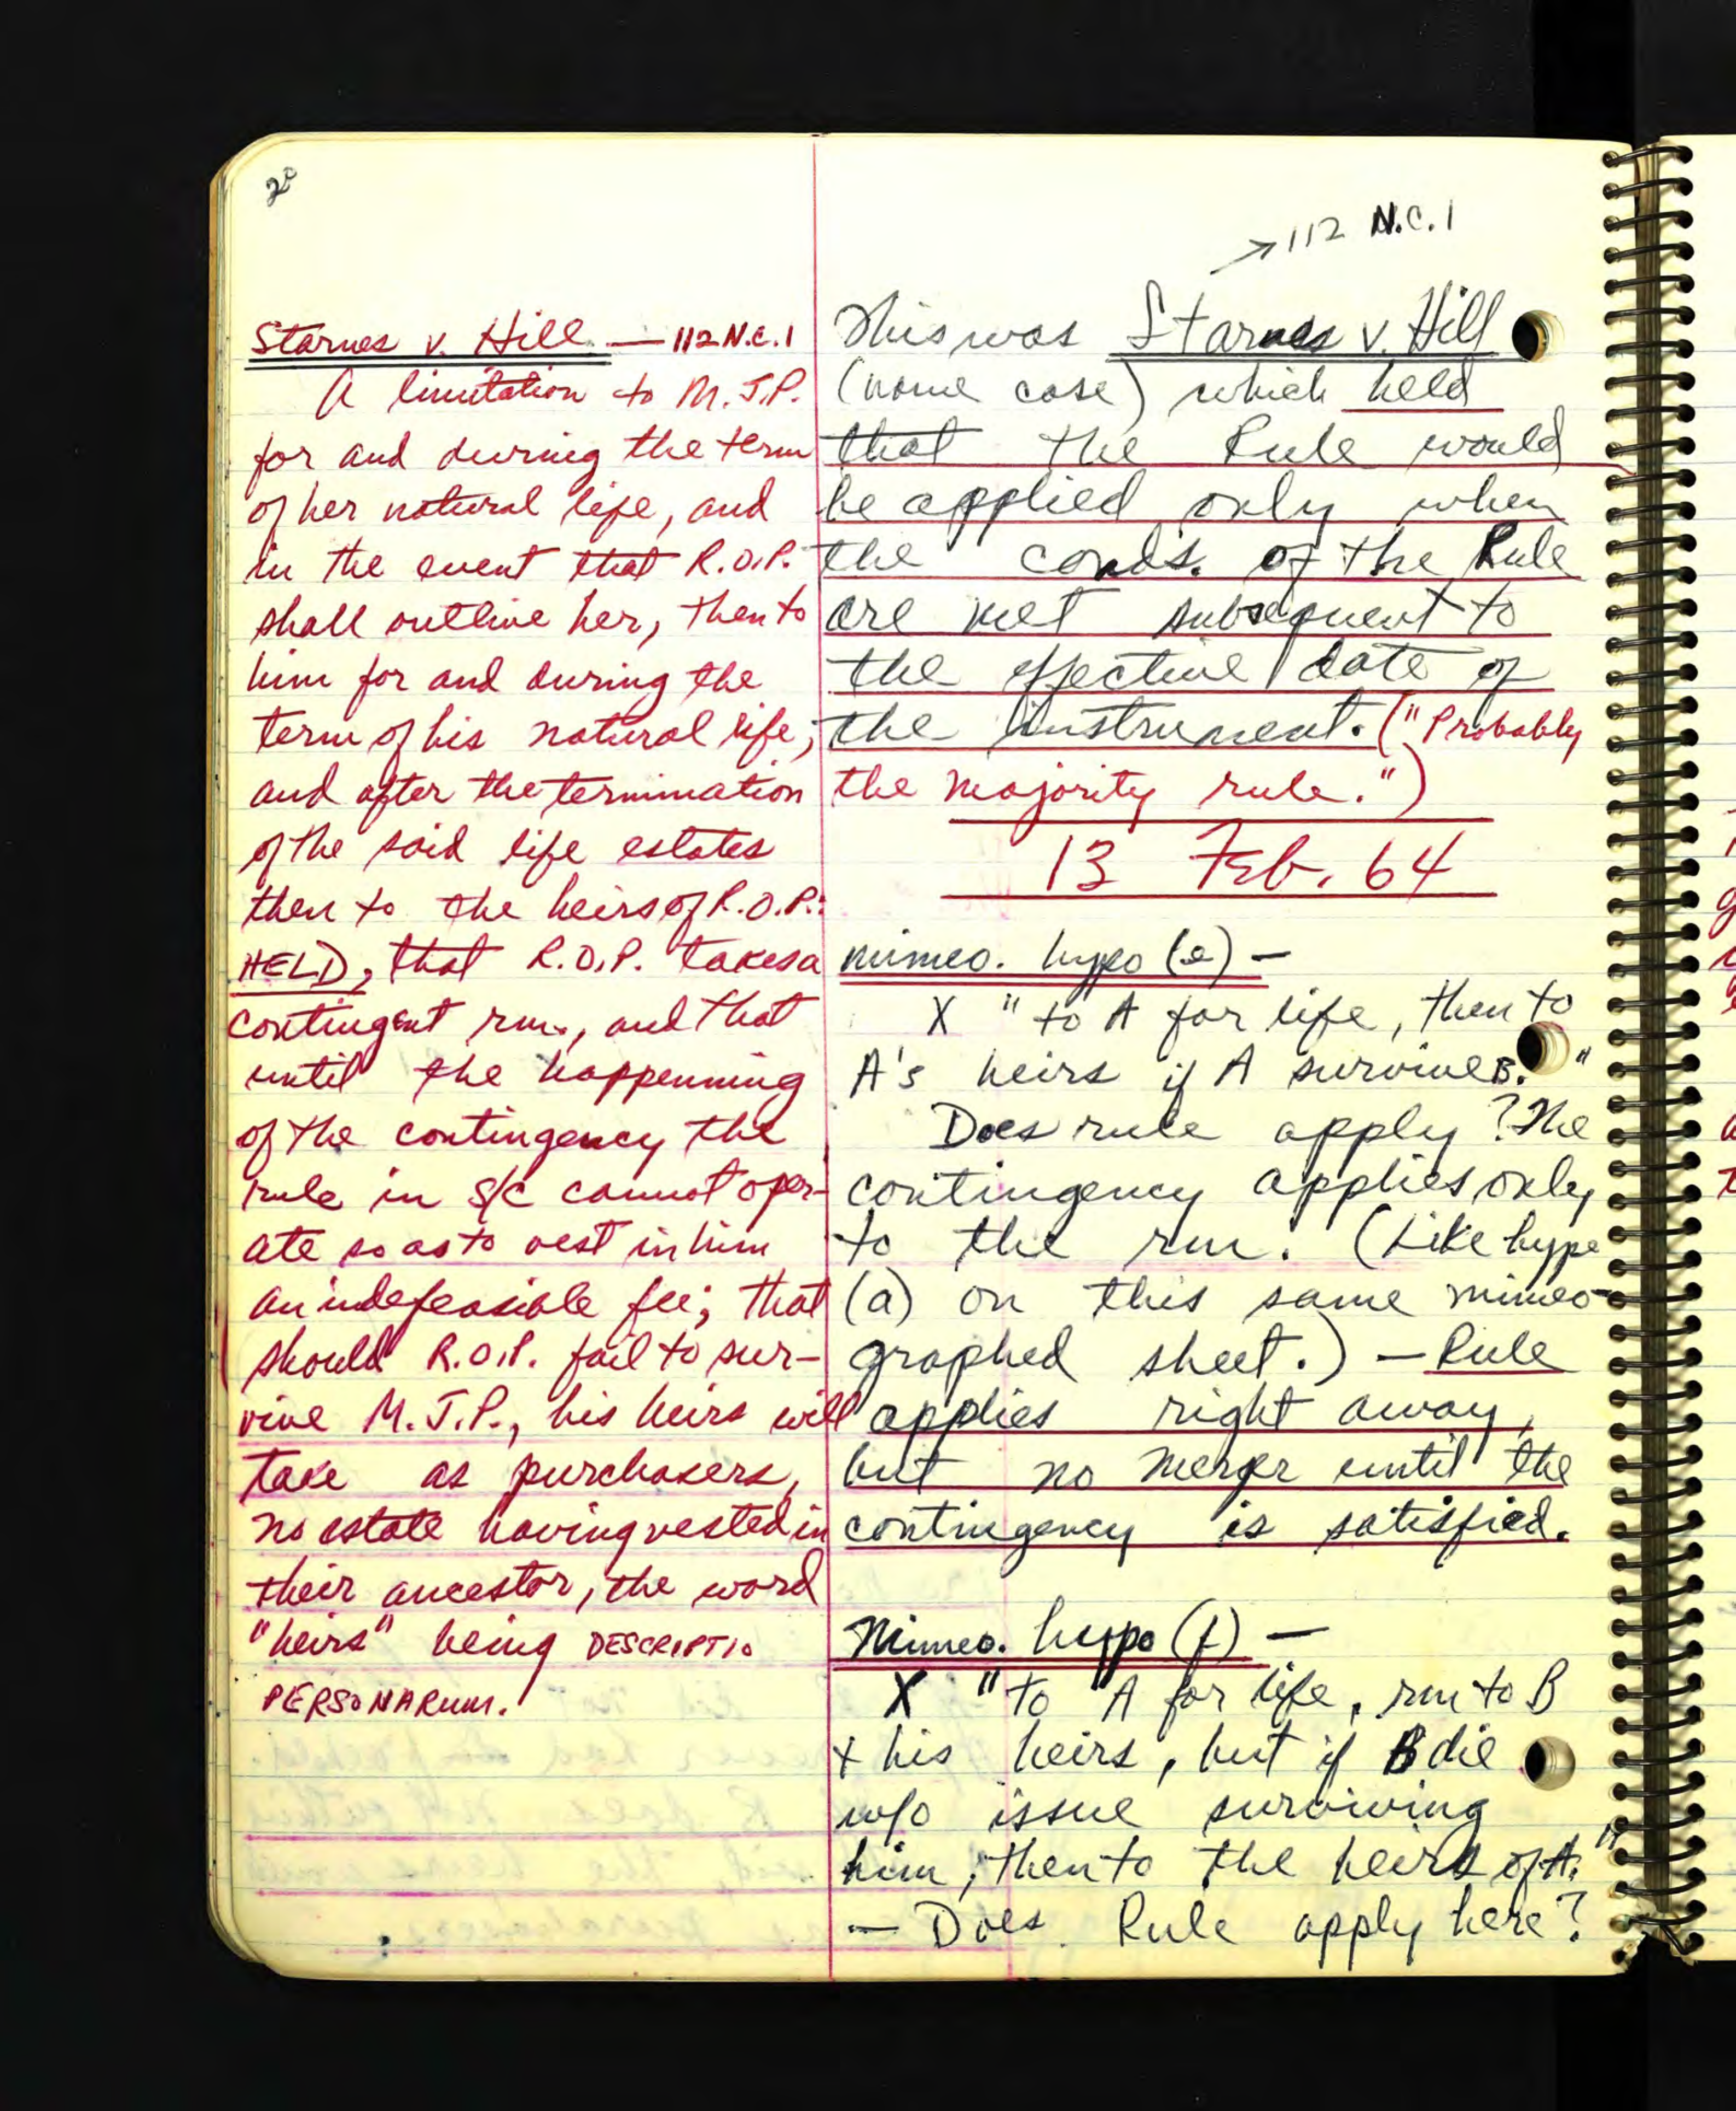 20
Starnes v. Hill — 112 N.C. 1
A limitation to M.J.P.
for and during the term
of her natural life, and
in the event that R.O.P.
shall outlive her, then to
him for and during the
term of his natural life;
and after the termination
of the said life estates
then to the heirs of R.O.P.:
HELD, that R.O.P. takes a
contingent rm., and that
until the happenning
of the contingency the
rule in S/C cannot oper-
ate so as to vest in him
an indefeasible fee; that
should R.O.P. fail to sur-
vive M.J.P., his heirs will
take as purchasers,
no estate having vested in
their ancestor, the word
"heirs" being DESCRIPTIO
PERSONARUM.
→ 112 N.C. 1
This was Starnes v. Hill
(name case) which held
that the Rule would
be applied only when
the conds. of the Rule
are met subsequent to
the effective date of
the instrument. ("Probably
the majority rule.")
13 Feb. 64
mimeo. hypo (e) —
X "to A for life, then to
A's heirs if A survive B."
Does rule apply? The
contingency applies only
to the rm. (Like hypo
(a) on this same mimeo-
graphed sheet.) — Rule
applies right away,
but no merger until the
contingency is satisfied.
Mimeo. hypo (f) —
X "to A for life, rm to B
+ his heirs, but if B die
w/o issue surviving
him, then to the heirs of A."
— Does Rule apply here?